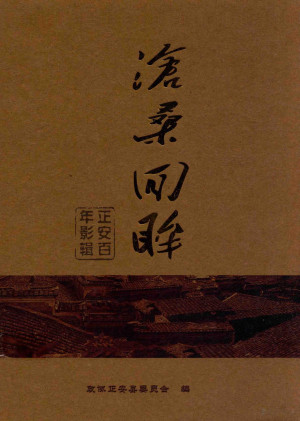 滄桑回眸
正安百
年影辑
政协正安县委员会 编